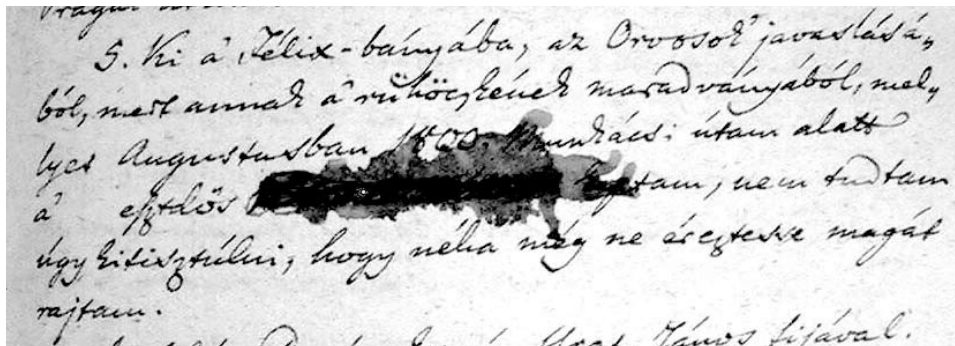 5. Ki a' Félix-bányába, az Orvosok' javaslásá„
ból, mert annak a' rühöcskének maradványából, mel„
lyet Augustusban 1800. Munkácsi útam alatt
a'
kaptam, nem tudtam
úgy kitisztúlni, hogy néha még ne éreztesse magát
rajtam.
János fijával.